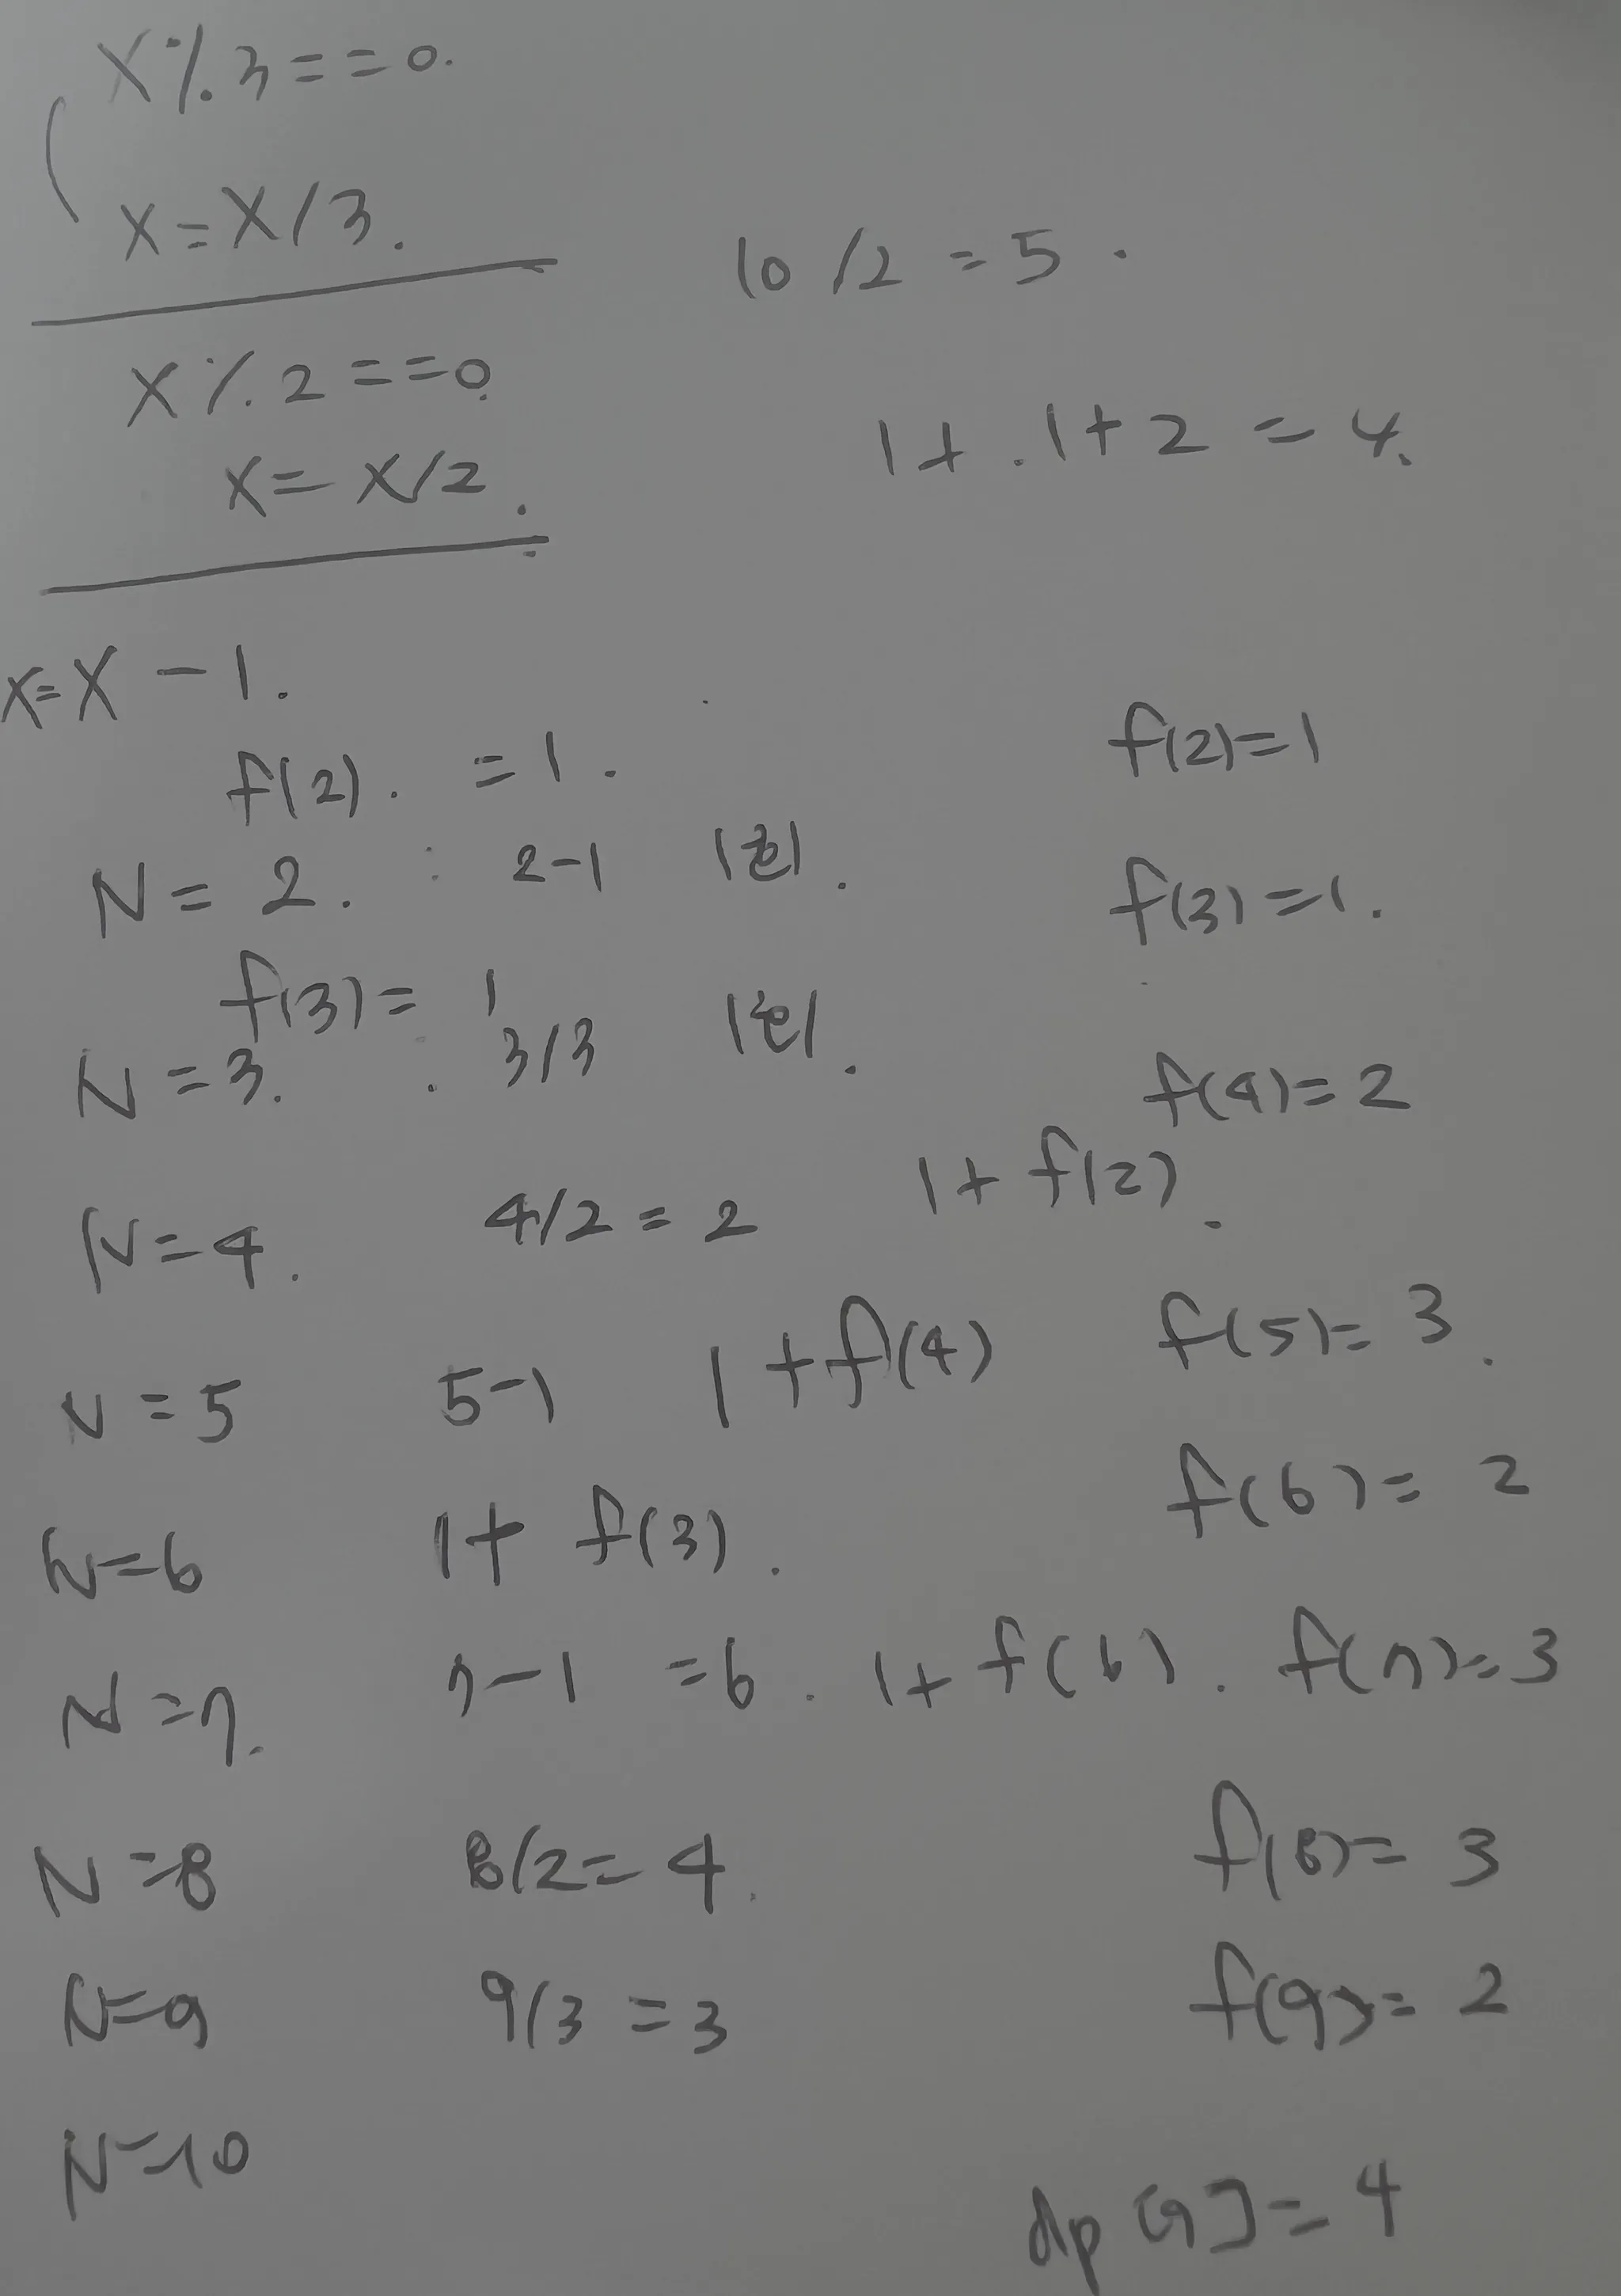 x%3==0.
x=x/3.
10/2=5.
x%2==0.
x=x/2.
1+.1+2=4.
x=x-1.
f(2).=1.
f(2)=1
N=2. : 2-1 1번.
f(3)=1.
f(3)=1
N=3. : 3/3 1번.
f(4)=2
N=4. 4/2=2 1+f(2).
f(5)=3.
N=5 5-1 1+f(4)
f(6)=2
N=6 1+f(3).
N=7. 7-1=6. 1+f(6). f(7)=3
N=8 8/2=4. f(8)=3
N=9 9/3=3 f(9)=2
N=10
dp[9]=4